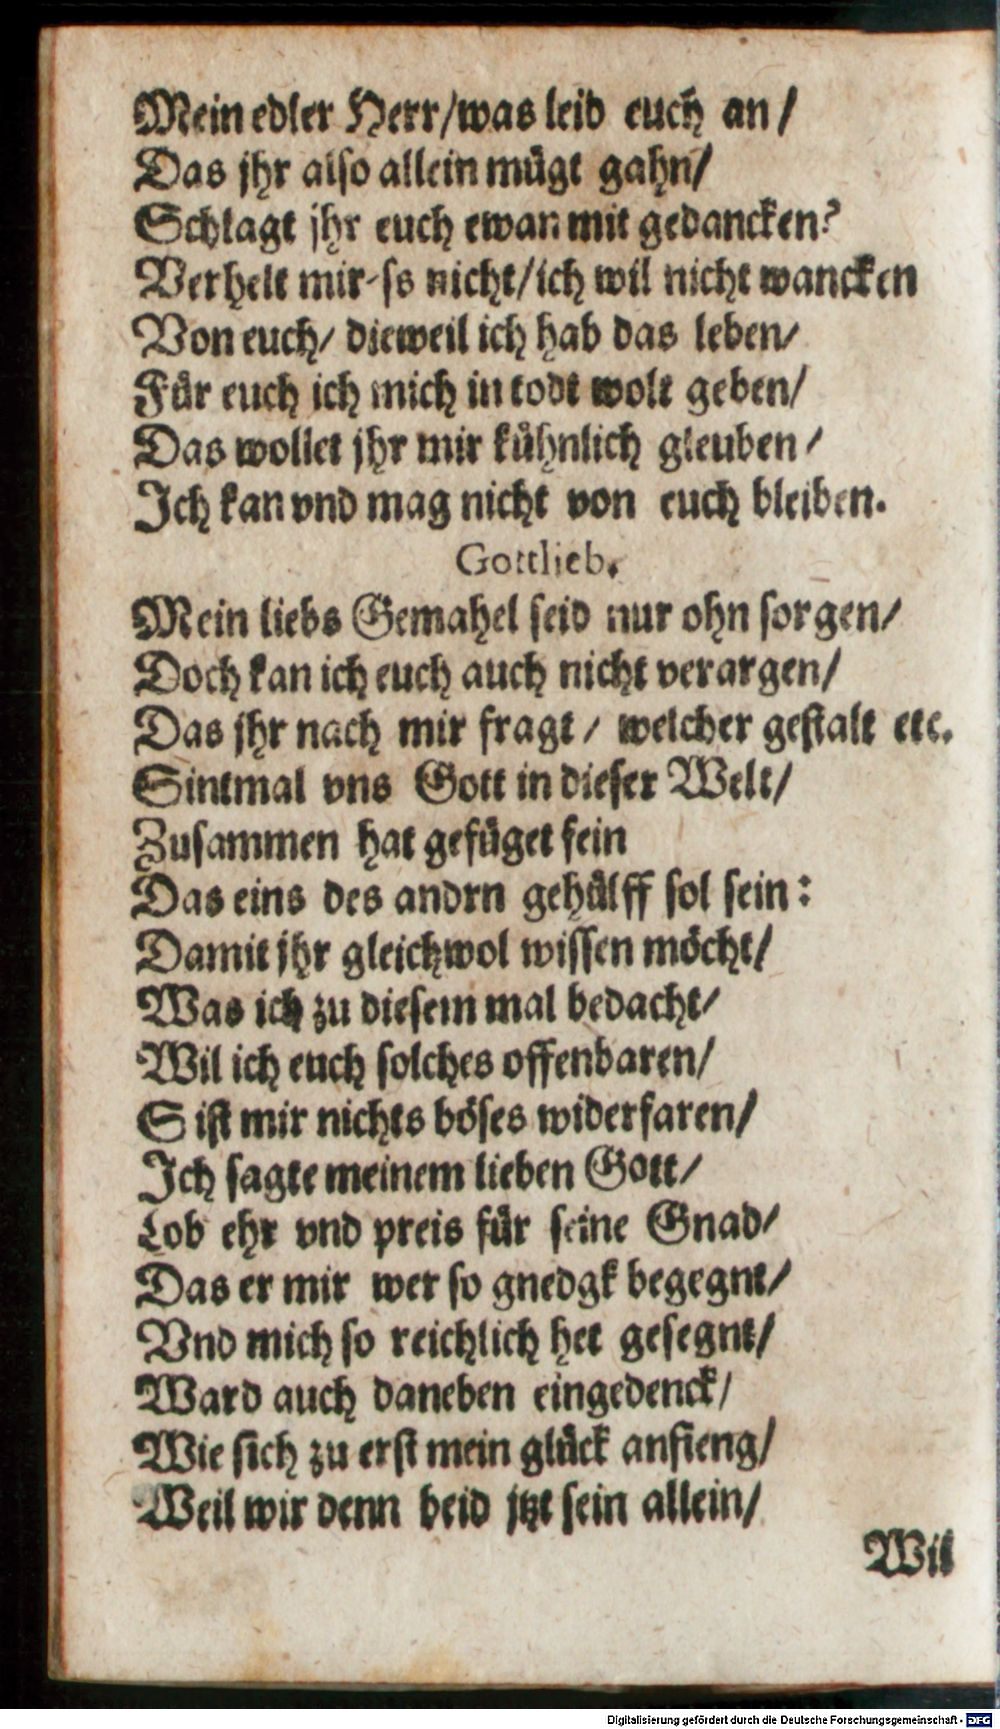 Mein edler Herr/was leid euch an/
Das jhr also allein mügt gahn/
Schlagt jhr euch ewan mit gedancken?
Verhelt mir-ss nicht/ich wil nicht wancken
Von euch/ dieweil ich hab das leben/
Für euch ich mich in todt wolt geben/
Das wollet jhr mir kühnlich gleuben/
Ich kan vnd mag nicht von euch bleiben.
Gottlieb.
Mein liebs Gemahel seid nur ohn sorgen/
Doch kan ich euch auch nicht verargen/
Das jhr nach mir fragt/ welcher gestalt etc.
Sintmal vns Gott in dieser Welt/
Zusammen hat gefüget fein
Das eins des andrn gehülff sol sein:
Damit jhr gleichwol wissen möcht/
Was ich zu diesem mal bedacht/
Wil ich euch solches offenbaren/
S ist mir nichts böses widerfaren/
Ich sagte meinem lieben Gott/
Lob ehr vnd preis für seine Gnad/
Das er mir wer so gnedgk begegnt/
Vnd mich so reichlich het gesegnt/
Ward auch daneben eingedenck/
Wie sich zu erst mein glück anfieng/
Weil wir denn beid jtzt sein allein/
Wil
Digitalisierung gefördert durch die Deutsche Forschungsgemeinschaft - DFG